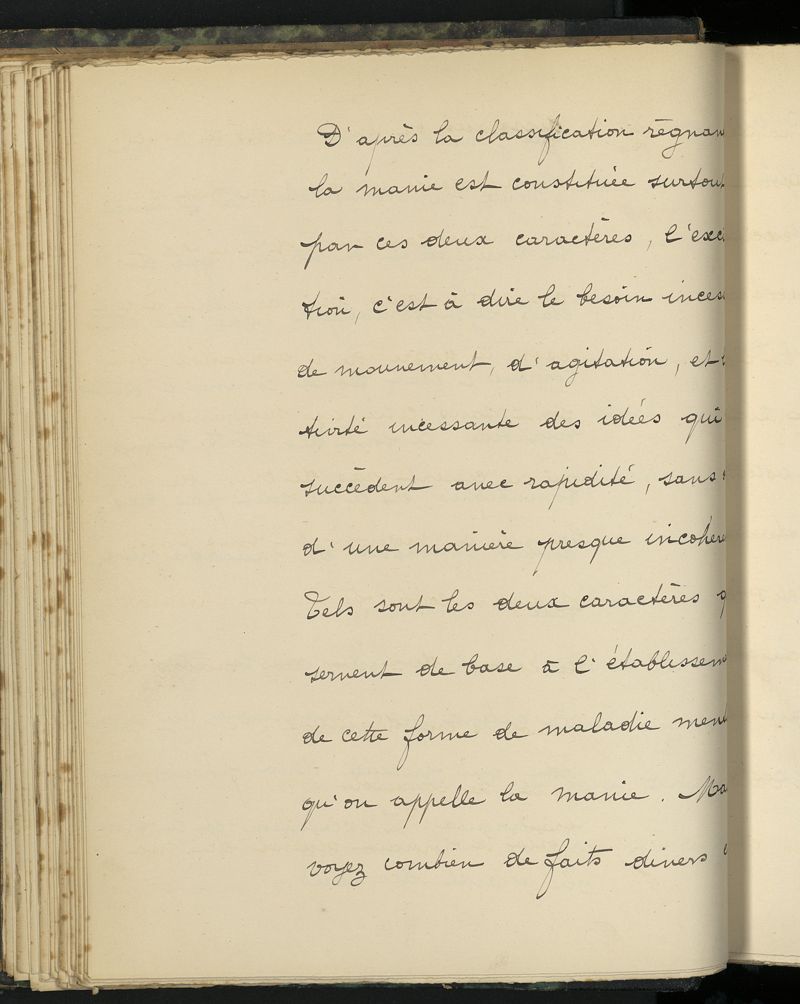 D'après la classification régnan
la manie est constituée surtout
par ces deux caractères, l'exci
tion, c'est à dire le besoin inces
de mouvement, d'agitation, et
tivité incessante des idées qui
succèdent avec rapidité, sans
d'une manière presque incohére
Tels sont les deux caractères q
servent de base à l'établissem
de cette forme de maladie ment
qu'on appelle la manie. Ma
voyez combien de faits divers